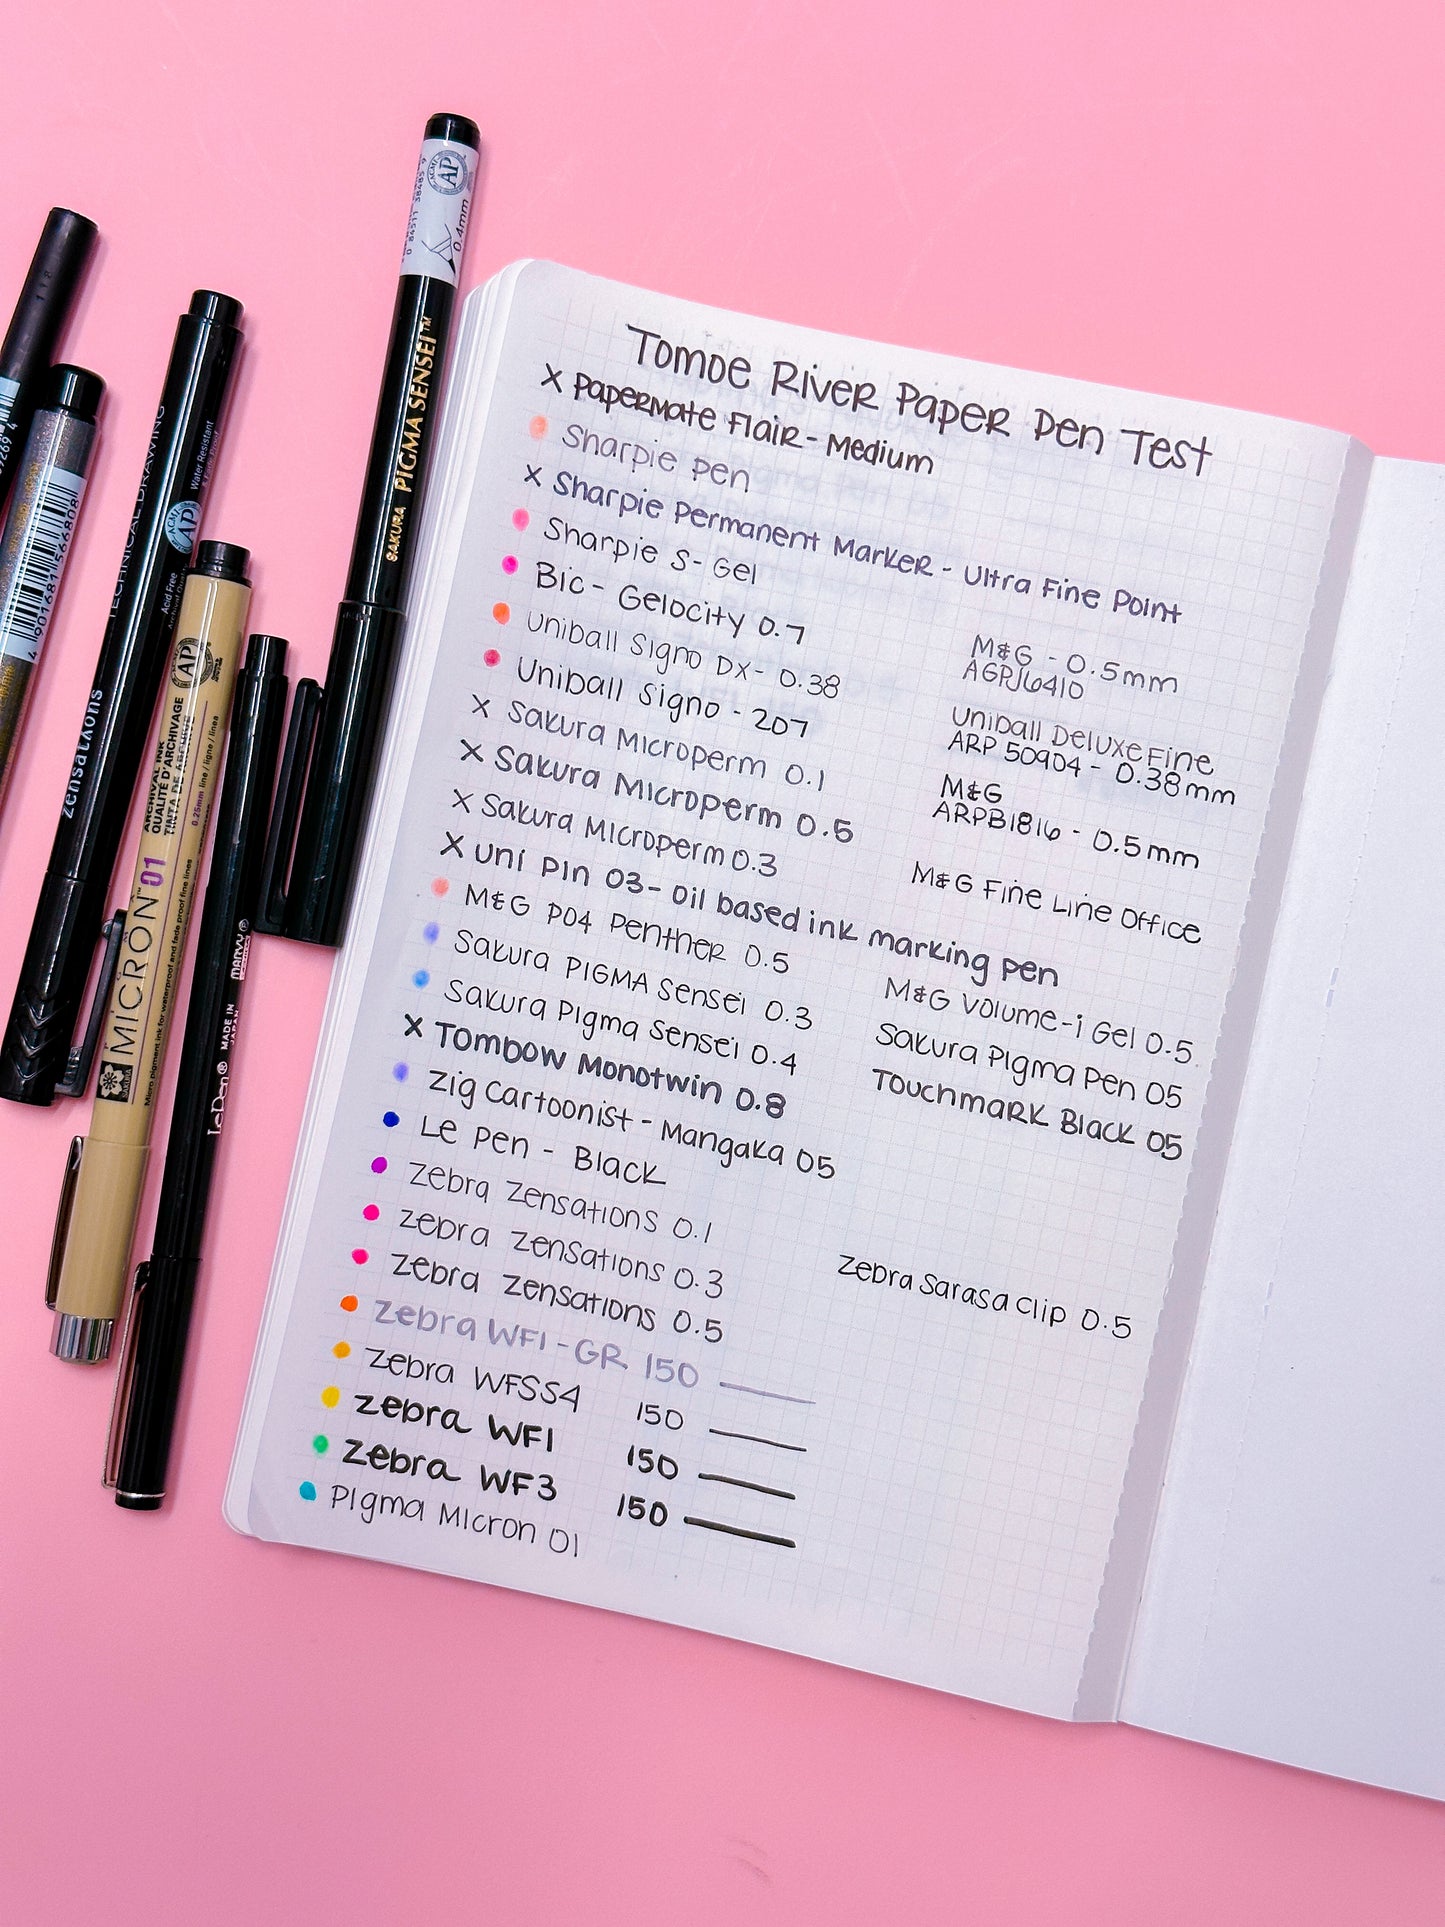 Tomoe River Paper Pen Test
X Papermate Flair - Medium
Sharpie Pen
X Sharpie Permanent Marker - Ultra Fine Point
Sharpie S-Gel
Bic - Gelocity 0.7
Uniball Signo DX - 0.38
Uniball Signo - 207
X Sakura Microperm 0.1
X Sakura Microperm 0.5
X Sakura Microperm 0.3
X Uni Pin 03 - Oil based ink marking pen
M&G P04 Penther 0.5
Sakura PIGMA Sensei 0.3
Sakura Pigma Sensei 0.4
X Tombow Monotwin 0.8
Zig Cartoonist - Mangaka 05
Le Pen - Black
Zebra Zensations 0.1
Zebra Zensations 0.3
Zebra Zensations 0.5
Zebra WF1 - GR 150
Zebra WFSS4 150
Zebra WF1 150
Zebra WF3 150
Pigma Micron 01
M&G - 0.5mm
AGPJ6410
Uniball Deluxe Fine
ARP 50904 - 0.38mm
M&G
ARPB1816 - 0.5mm
M&G Fine Line Office
M&G Volume-i Gel 0.5
Sakura Pigma Pen 05
Touchmark Black 05
Zebra Sarasa Clip 0.5
0.4mm
ACMI
AP
0 84511 38485 9
SAKURA PIGMA SENSEI™
118
4 901681 566808
TECHNICAL DRAWING
zensations
Water Resistant
ACMI
AP
Acid Free
AP
ARCHIVAL INK
QUALITÉ D'ARCHIVAGE
TINTA DE ARCHIVE
0.25mm line / ligne / línea
MICRON™ 01
Micro pigment ink for waterproof and fade proof fine lines
SAKURA
MARVY
MADE IN
JAPAN
LePen®